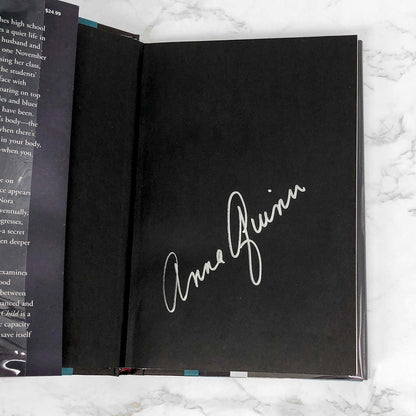 $24.99
hes high school
s a quiet life in
husband and
one November
sing her class,
the students'
face with
oating on top
les and blues
have been.
's body—the
when there's
in your body,
—when you
e on
ce appears
Nora
ventually,
gresses,
—a secret
en deeper
examines
ood
between
nanced and
Child is a
e capacity
save itself
Anne Quinn